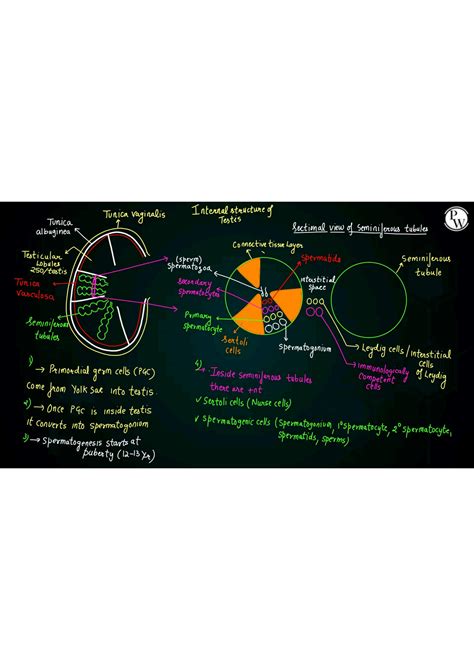 PW
Internal structure of
Testes
Tunica vaginalis
Tunica
albuginea
Testicular
Lobules
250/testis
Tunica
vasculosa
Seminiferous
tubules
Sectional view of Seminiferous tubules
Connective tissue Layer
(sperm)
Spermatozoa
Secondary
spermatocytes
Primary
spermatocyte
Sertoli
cells
Spermatids
Interstitial
space
Spermatogonium
Seminiferous
tubule
Leydig cells / Interstitial
cells
of Leydig
Immunologically
Competent
cells
1) → Primordial germ cells (PGC)
Come from Yolk Sac into testis.
2) → Once PGC is inside testis
it converts into spermatogonium
3) → Spermatogenesis starts at
puberty (12-13 Yr)
4) • Inside seminiferous tubules
there are +nt
✓ Sertoli cells (Nurse cells)
✓ Spermatogenic cells (Spermatogonium, 1° spermatocyte, 2° spermatocyte,
spermatids, sperms)